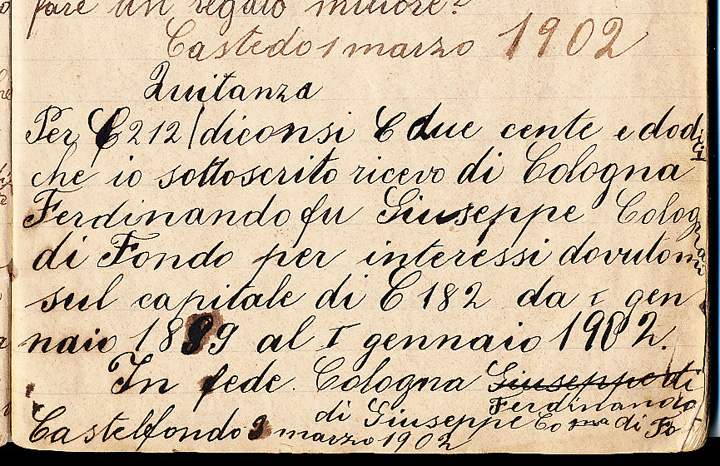 fare un regalo migliore?
Castedo 1 marzo 1902
Quitanza
Per C 212/diconsi C due cente e dodici
che io sottoscrito ricevo di Cologna
Ferdinando fu Giuseppe Cologna
di Fondo per interessi dovutomi
sul capitale di C 182 da I gen
naio 1889 al I gennaio 1902.
In fede. Cologna Giuseppe di
Ferdinando
di Giuseppe di Fo
Castelfondo 3 marzo 1902